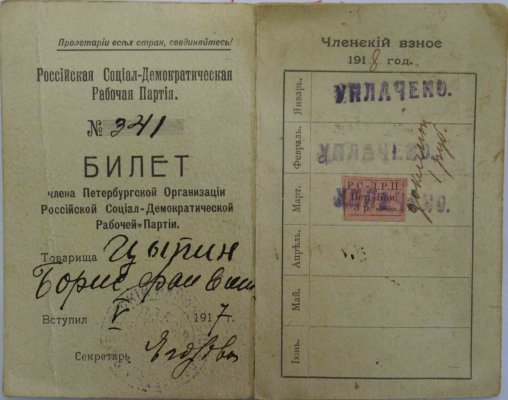 Пролетаріи всѣхъ стран, соединяйтесь!
Россійская Соціал-Демократическая
Рабочая Партія.
№ 341
БИЛЕТ
члена Петербургской Организаціи
Россійской Соціал-Демократической
Рабочей Партіи.
Товарища Цыпин
Борис
Вступил V 1917 г.
Секретарь
Членскій взнос
1918 год.
Январь.
УПЛАЧЕНО.
Февраль.
Март.
Р.С.-Д.Р.П.
Апрѣль.
Май.
Іюнь.